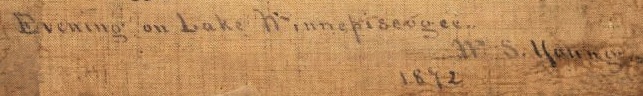 Evening on Lake Winnepiseogee.
W. S. Young.
1872